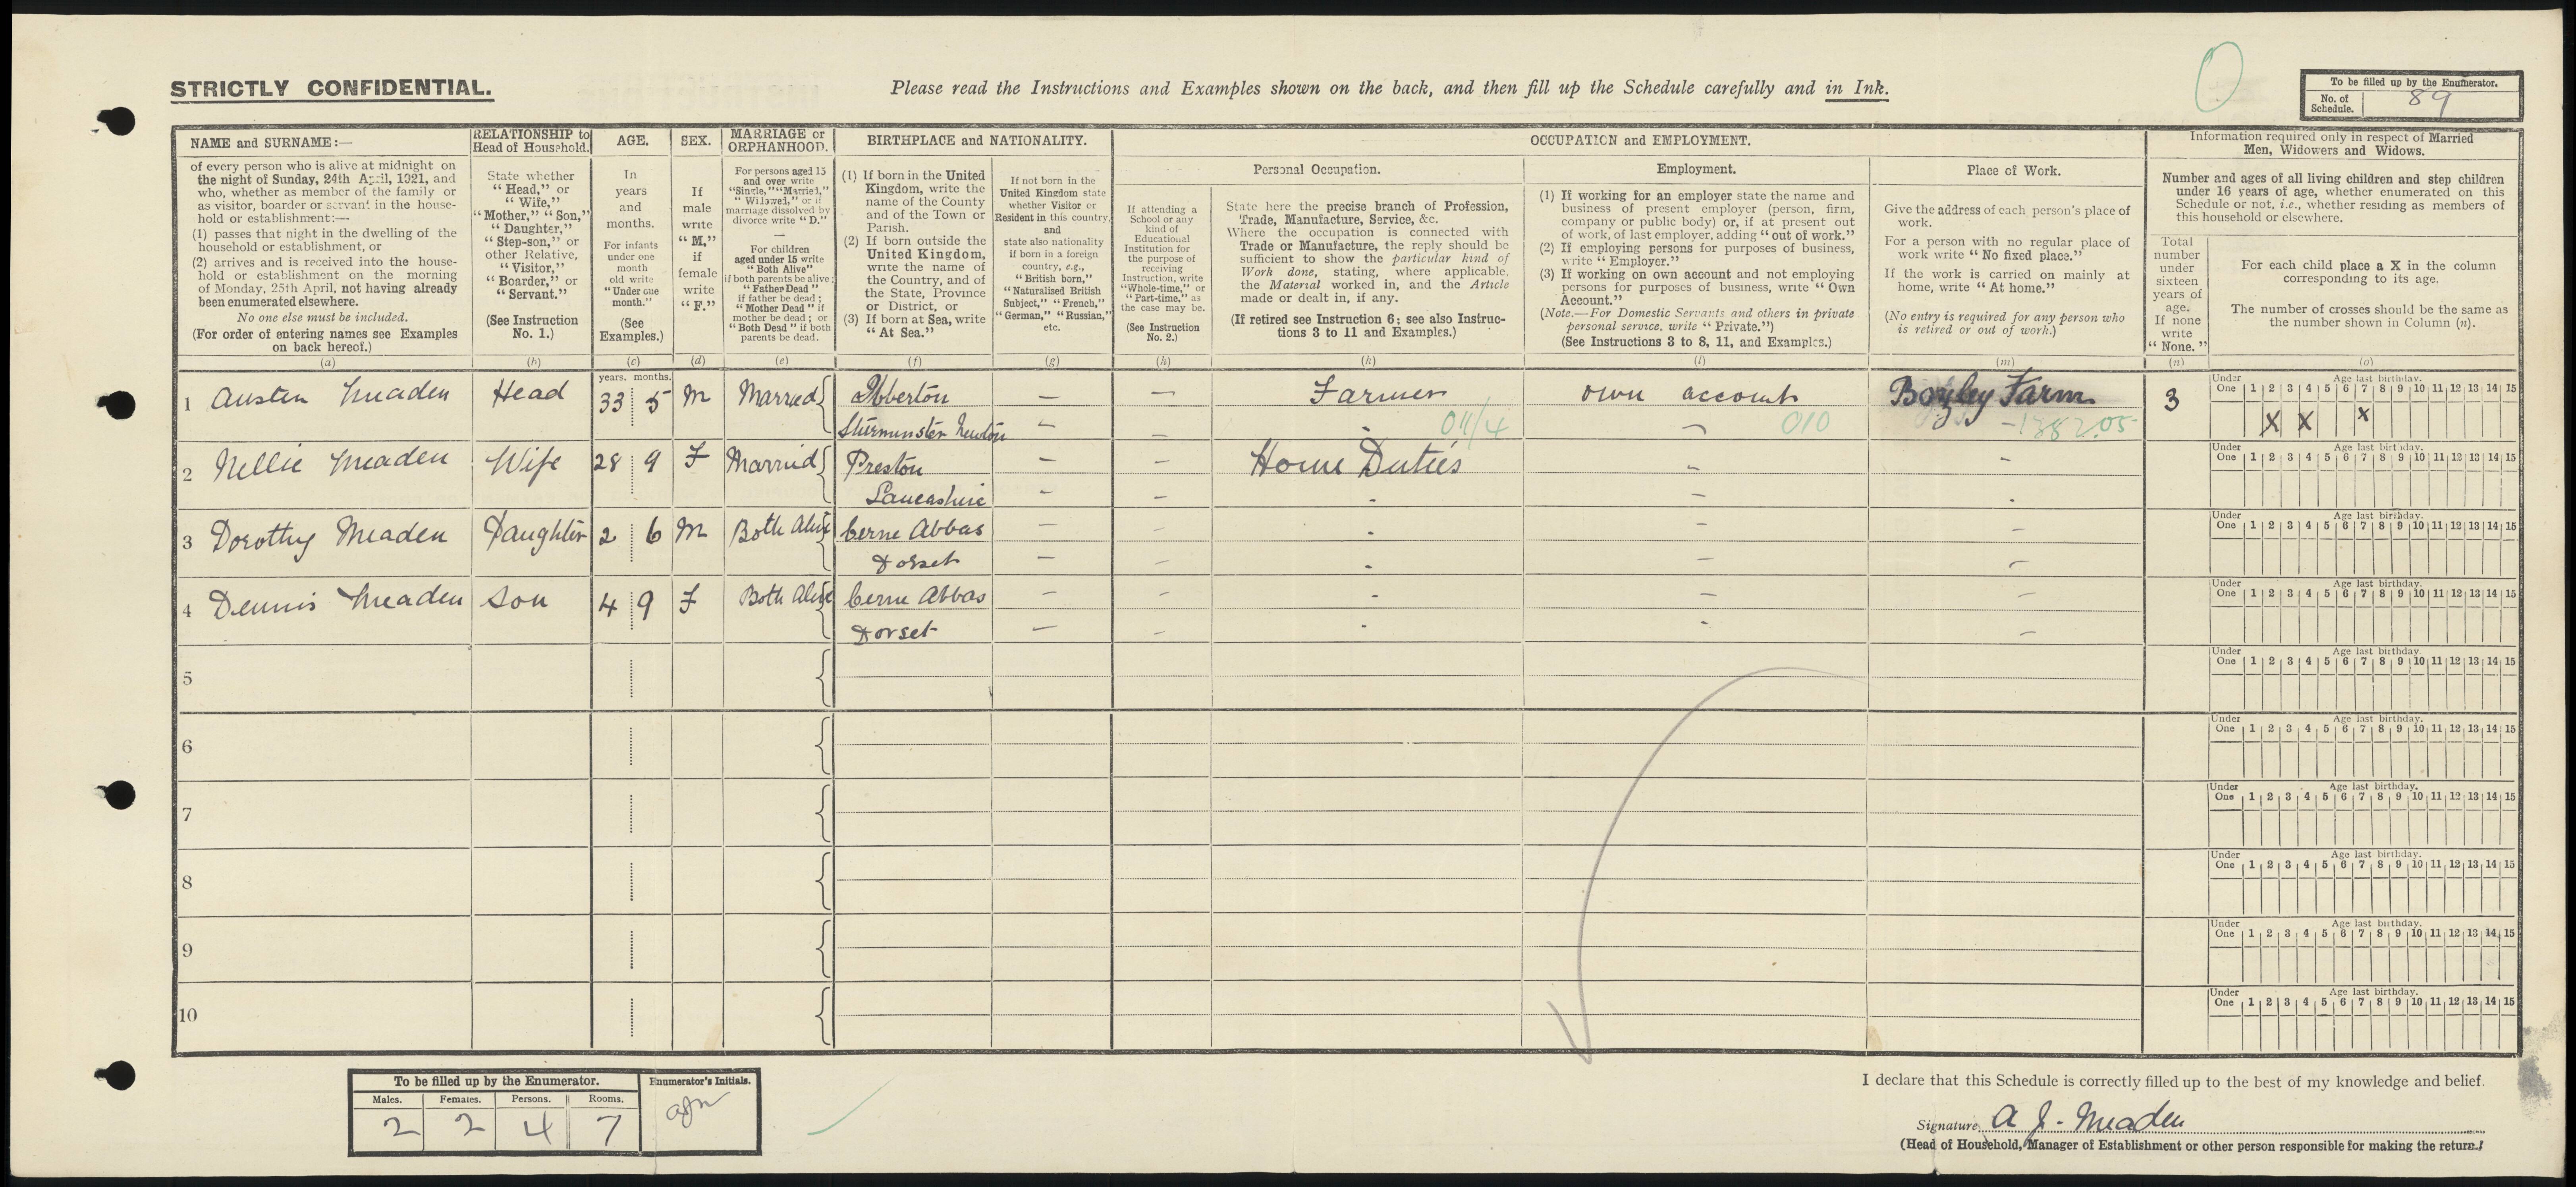 STRICTLY CONFIDENTIAL.
Please read the Instructions and Examples shown on the back, and then fill up the Schedule carefully and in Ink.
To be filled up by the Enumerator.
No. of Schedule. 89
NAME and SURNAME:—
of every person who is alive at midnight on
the night of Sunday, 24th April, 1921, and
who, whether as member of the family or
as visitor, boarder or servant in the house-
hold or establishment:—
(1) passes that night in the dwelling of the
household or establishment, or
(2) arrives and is received into the house-
hold or establishment on the morning
of Monday, 25th April, not having already
been enumerated elsewhere.
No one else must be included.
(For order of entering names see Examples
on back hereof.)
(a)
RELATIONSHIP to
Head of Household.
State whether
"Head," or
"Wife,"
"Mother," "Son,"
"Daughter,"
"Step-son," or
other Relative,
"Visitor,"
"Boarder," or
"Servant."
(See Instruction
No. 1.)
(b)
AGE.
In
years
and
months.
For infants
under one
month
old write
"Under one
month."
(See
Examples.)
(c)
SEX.
If
male
write
"M,"
if
female
write
"F."
(d)
MARRIAGE or
ORPHANHOOD.
For persons aged 15
and over write
"Single," "Married,"
"Widowed," or if
marriage dissolved by
divorce write "D."
—
For children
aged under 15 write
"Both Alive"
if both parents be alive;
"Father Dead"
if father be dead;
"Mother Dead" if
mother be dead; or
"Both Dead" if both
parents be dead.
(e)
BIRTHPLACE and NATIONALITY.
(1) If born in the United
Kingdom, write the
name of the County
and of the Town or
Parish.
(2) If born outside the
United Kingdom,
write the name of
the Country, and of
the State, Province
or District, or
(3) If born at Sea, write
"At Sea."
(f)
If not born in the
United Kingdom state
whether Visitor or
Resident in this country,
and
state also nationality
if born in a foreign
country, e.g.,
"British born,"
"Naturalised British
Subject," "French,"
"German," "Russian,"
etc.
(g)
OCCUPATION and EMPLOYMENT.
If attending a
School or any
kind of
Educational
Institution for
the purpose of
receiving
Instruction, write
"Whole-time," or
"Part-time," as
the case may be.
(See Instruction
No. 2.)
(h)
Personal Occupation.
State here the precise branch of Profession,
Trade, Manufacture, Service, &c.
Where the occupation is connected with
Trade or Manufacture, the reply should be
sufficient to show the particular kind of
Work done, stating, where applicable,
the Material worked in, and the Article
made or dealt in, if any.
(If retired see Instruction 6; see also Instruc-
tions 3 to 11 and Examples.)
(k)
Employment.
(1) If working for an employer state the name and
business of present employer (person, firm,
company or public body) or, if at present out
of work, of last employer, adding "out of work."
(2) If employing persons for purposes of business,
write "Employer."
(3) If working on own account and not employing
persons for purposes of business, write "Own
Account."
(Note.—For Domestic Servants and others in private
personal service, write "Private.")
(See Instructions 3 to 8, 11, and Examples.)
(l)
Place of Work.
Give the address of each person's place of
work.
For a person with no regular place of
work write "No fixed place."
If the work is carried on mainly at
home, write "At home."
(No entry is required for any person who
is retired or out of work.)
(m)
Information required only in respect of Married
Men, Widowers and Widows.
Number and ages of all living children and step children
under 16 years of age, whether enumerated on this
Schedule or not, i.e., whether residing as members of
this household or elsewhere.
Total
number
under
sixteen
years of
age.
If none
write
"None."
(n)
For each child place a X in the column
corresponding to its age.
The number of crosses should be the same as
the number shown in Column (n).
(o)
years. months.
Under One Age last birthday. 1 2 3 4 5 6 7 8 9 10 11 12 13 14 15
1 Austen Meaden Head 33 5 M Married Ibberton — — Farmer own account Bozley Farm 3 X X X
Sturminster Newton — — 011/4 010
2 Nellie Meaden Wife 28 9 F Married Preston — — Home Duties
Under One Age last birthday. 1 2 3 4 5 6 7 8 9 10 11 12 13 14 15
Lancashire
3 Dorothy Meaden Daughter 2 6 M Both Alive Cerne Abbas
Under One Age last birthday. 1 2 3 4 5 6 7 8 9 10 11 12 13 14 15
Dorset
4 Dennis Meaden Son 4 9 F Both Alive Cerne Abbas
Under One Age last birthday. 1 2 3 4 5 6 7 8 9 10 11 12 13 14 15
Dorset
5
Under One Age last birthday. 1 2 3 4 5 6 7 8 9 10 11 12 13 14 15
6
Under One Age last birthday. 1 2 3 4 5 6 7 8 9 10 11 12 13 14 15
7
Under One Age last birthday. 1 2 3 4 5 6 7 8 9 10 11 12 13 14 15
8
Under One Age last birthday. 1 2 3 4 5 6 7 8 9 10 11 12 13 14 15
9
Under One Age last birthday. 1 2 3 4 5 6 7 8 9 10 11 12 13 14 15
10
Under One Age last birthday. 1 2 3 4 5 6 7 8 9 10 11 12 13 14 15
To be filled up by the Enumerator.
Enumerator's Initials.
Males. Females. Persons. Rooms.
2 2 4 7
I declare that this Schedule is correctly filled up to the best of my knowledge and belief.
Signature A J. Meaden
(Head of Household, Manager of Establishment or other person responsible for making the return.)